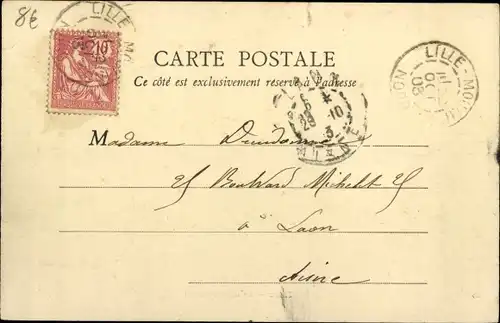 8€
LILLE-MO
10
CARTE POSTALE
Ce côté est exclusivement réservé à l'adresse
LILLE-MO
OCT
03
29 -10
3
Madame
25 Boulvard Michelet 25
à Laon
Aisne